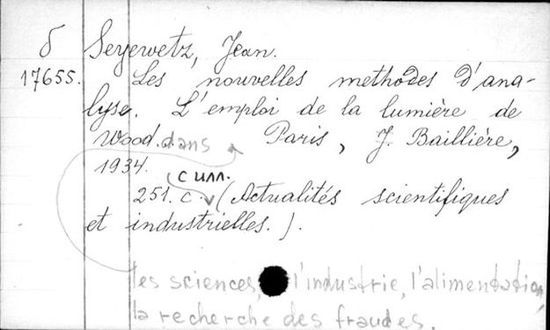 δ Seyewetz, Jean.
17655. Les nouvelles methodes d'ana-
lyse. L'emploi de la lumière de
Wood. dans Paris, J. Baillière,
1934.
с илл.
251. c. (Actualités scientifiques
et industrielles.).
les sciences, l'industrie, l'alimentation,
la recherche des fraudes.